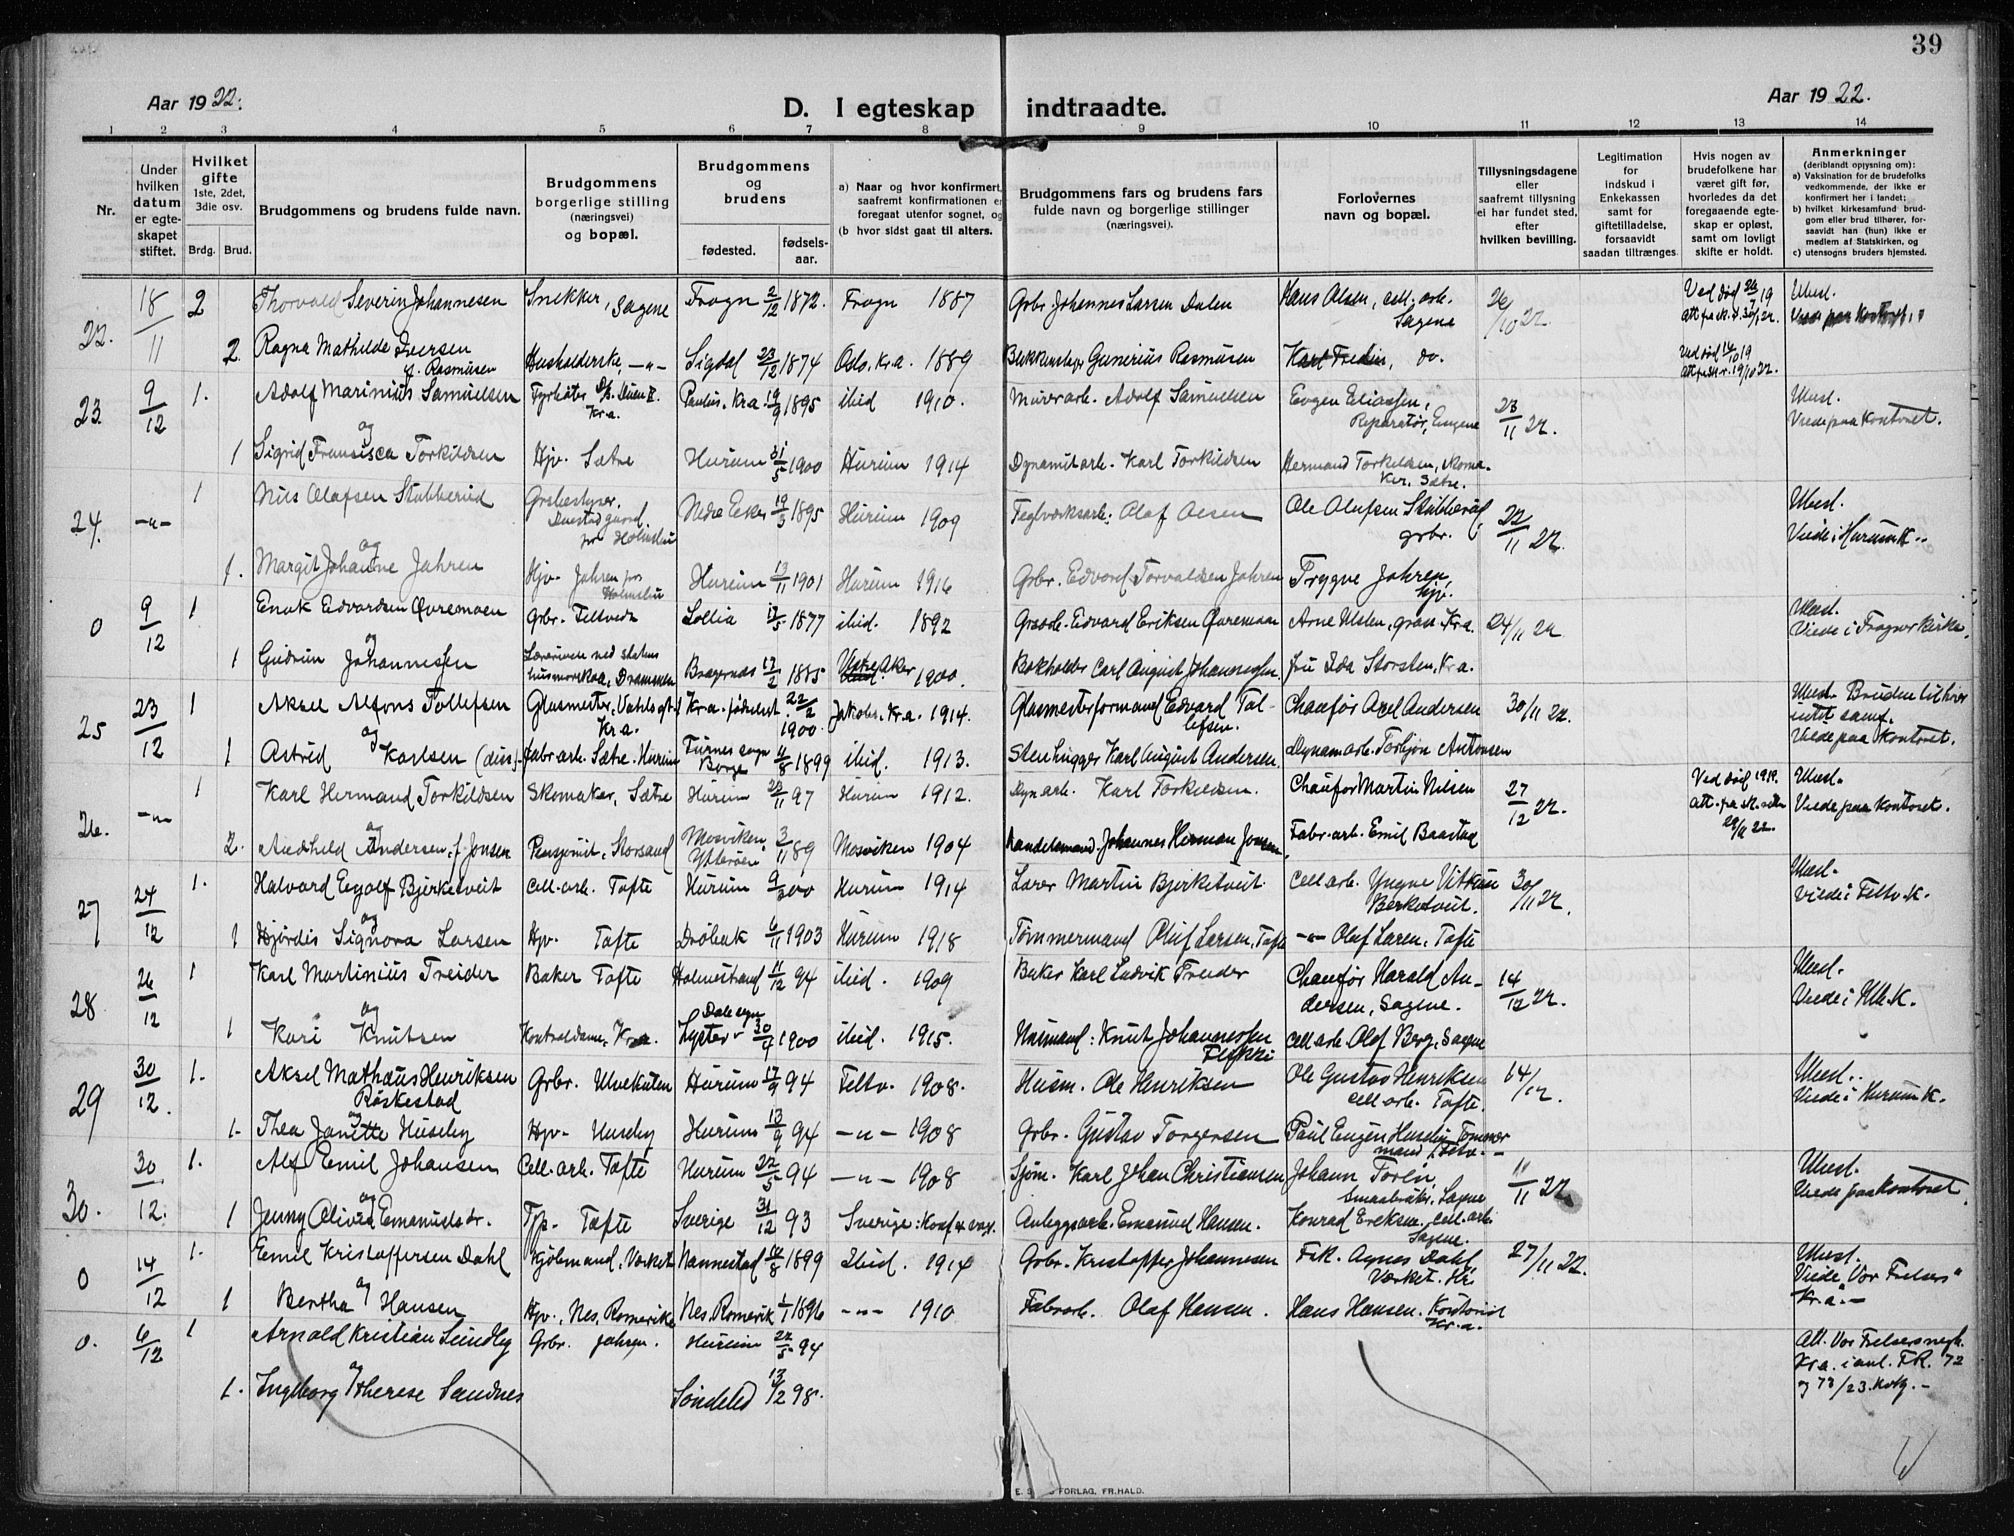 39
Aar 1922.
D. I egteskap indtraadte.
Aar 1922.
1 2 3 4 5 6 7 8 9 10 11 12 13 14
Nr.
Under hvilken datum er egteskapet stiftet.
Hvilket gifte
1ste, 2det, 3die osv.
Brdg. Brud.
Brudgommens og brudens fulde navn.
Brudgommens borgerlige stilling (næringsvei) og bopæl.
Brudgommens og brudens
fødested. fødsels-aar.
a) Naar og hvor konfirmert, saafremt konfirmationen er foregaat utenfor sognet, og
(b hvor sidst gaat til alters.
Brudgommens fars og brudens fars fulde navn og borgerlige stillinger (næringsvei).
Forlovernes navn og bopæl.
Tillysningsdagene eller saafremt tillysning ei har fundet sted, efter hvilken bevilling.
Legitimation for indskud i Enkekassen samt for giftetilladelse, forsaavidt saadan tiltrænges
Hvis nogen av brudefolkene har været gift før, hvorledes da det foregaaende egteskap er opløst, samt om lovligt skifte er holdt.
Anmerkninger
(deriblandt oplysning om):
a) Vaksination for de brudefolks vedkommende, der ikke er konfirmert her i landet;
b) hvilket kirkesamfund brudgom eller brud tilhører, forsaavidt han (hun) ikke er medlem af Statskirken, og
c) utensogns bruders hjemsted.
22. 18/11 2 Thorvald Severin Johannesen Snekker, Sagene Frogn 2/12 1872. Frogn 1887 Grbr Johannes Larsen Dalen Hans Olsen, cell. arb. Sagene 26/10 22. Ved død
2. Ragna Mathilde Iversen f. Rasmusen Husholderske, -"- Sigdal 23/12 1874 Oslo, Kr.a. 1889 Gunerius Rasmusen Karl Fredin, do.
23 9/12 1. Adolf Marinius Samuelsen Fyrbøter Kr.a. Paulus, Kr.a. 19/9 1895 ibid 1910. Murerarb. Adolf Samuelsen Eugen Eliassen, Reparatør, 23/11 22. Viede paa kontoret.
og
1 Sigrid Fransisca Torkildsen Hjv. Sætre Hurum 31/5 1900 Hurum 1914 Dynamitarb. Karl Torkildsen Hermand Torkildsen, Skomaker, Sætre.
24. -"- 1 Nils Olafsen Stubberud Grbestyrer. pr Holmsbu Nedre Eker 19/3 1895 Hurum 1909 Teglværksarb. Olaf Olsen Ole Olafsen Stubberud, grbr. 22/11 22. Viede i Hurum K.
og
1. Margit Johanne Jahren Hjv. Jahren pr Holmsbu Hurum 13/11 1901 Hurum 1916 Grbr. Edvard Torvaldsen Jahren Trygve Jahren, hjv.
0 9/12 1 Enok Edvardsen Øvremoen Grbr. Filtvedt Sollia 17/5 1877 ibid. 1892 Edvard Eriksen Øvremoen Arne Ulsten, gross. Kr.a. 24/11 22 Viede i Frogner kirke.
og
1 Gudrun Johannessen Lærerinde ved statens husmorskole, Drammen Bragernes 17/2 1885 Vestre Aker 1900. Bokholder Carl August Johannessen fru Ida Storsten, Kr.a.
25 23/12 1 Aksel Alfons Tollefsen Glasmester, Kr.a. Kr.a. fødselsst. 22/2 1900. Jakobs, Kr.a. 1914. Glasmesterformand Edvard Tollefsen. Chaufør Axel Andersen 30/11 22. Bruden tilhører intet samf. Viede paa kontoret.
og
1 Astrid Karlsen (diss.) Fabr.arb. Sætre, Hurum Borge 4/8 1899 ibid. 1913. Stenhugger Karl August Andersen. Dynam.arb. Torbjørn Antonsen
26. -"- 1 Karl Hermand Torkildsen Skomaker, Sætre Hurum 97 Hurum 1912. Dyn.arb. Karl Torkildsen. Chaufør Martin Nilsen 27/12 22. Ved død 1918. Viede paa kontoret.
og
2. Andersen, f. Jonsen Storsand Mosviken Ytterøen 3/11 89 Mosviken 1904 Handelsmand Johannes Herman Jonsen Fabr.arb. Emil Baastad
27 24/12 1. Halvard Eyolf Bjerketveit Cell.arb. Tofte Hurum 9/3 00 Hurum 1914 Lærer Martin Bjerketveit Cell.arb. Yngve Berketveit. 30/11 22. Viede i Filtv. K.
og
1 Hjørdis Signora Larsen Hjv. Tofte Drøbak 6/11 1903 Hurum 1918 Tømmermand Oluf Larsen, Tofte -"- Oluf Larsen, Tofte
28 26/12 1 Karl Martinius Treider Baker Tofte Holmestrand 11/12 94 ibid. 1909 Baker Karl Ludvik Treider Chaufør Harald Andersen, Sagene. 14/12 22. Viede i
og
1 Kari Knutsen Kontordame, Kr.a. Dale sogn Lyster 30/9 1900 ibid. 1915. Knut Johannessen Cell.arb. Olaf Berg, Sagene
29 30/12. 1. Aksel Mathæus Henriksen Røskestad Grbr. Ulvekulen Hurum 17/9 94 Filtv. 1908. Husm. Ole Henriksen Ole Gustav Henriksen cell.arb. Tofte. 14/12. Viede i Hurum K.
og
1. Thea Janette Huseby Hjv. Huseby Hurum 13/9 94 -"- 1908 Grbr. Gustav Torgersen Paul Eugen Huseby Tømmermand, Filtv.
30. 30/12. 1. Alf Emil Johansen Cell.arb. Tofte Hurum 22/5 94 -"- 1908 Sjøm. Karl Johan Christiansen Johann Torén, Sagene 11/11 22 Viede paa kontoret.
og
1 Jenny Olivia Emanuelsdr. Tjp. Tofte Sverige 31/12 93 Sverige: Konf. & vax. Anlegsarb. Emanuel Hansen. Konrad Eriksen, cell.arb. Sagene.
0 14/12 1. Emil Kristoffersen Dahl Kjøbmand, Verket Nannestad 14/8 1899 Ibid. 1914 Grbr. Kristoffer Johannesen Frk. Agnes Dahl, Verket. 27/11 22. Viede "Vor Frelsers" Kr.a.
og
1 Bertha Hansen Hjv., Nes, Romerike Nes, Romerik 1/1 1896 -"- 1910 Fabr.arb. Olaf Hansen. Hans Hansen. Kontorist Kr.a.
0. 6/12 1 Arnold Kristian Sundby Grbr. Jahren. Hurum 22/5 94 Att. Vor Frelsers Kr.a. i anl. FR. 72 og 73/23.
og
1. Ingeborg Therese Sandnes Søndeled 13/12 98.
FORLAG, FR.HALD.